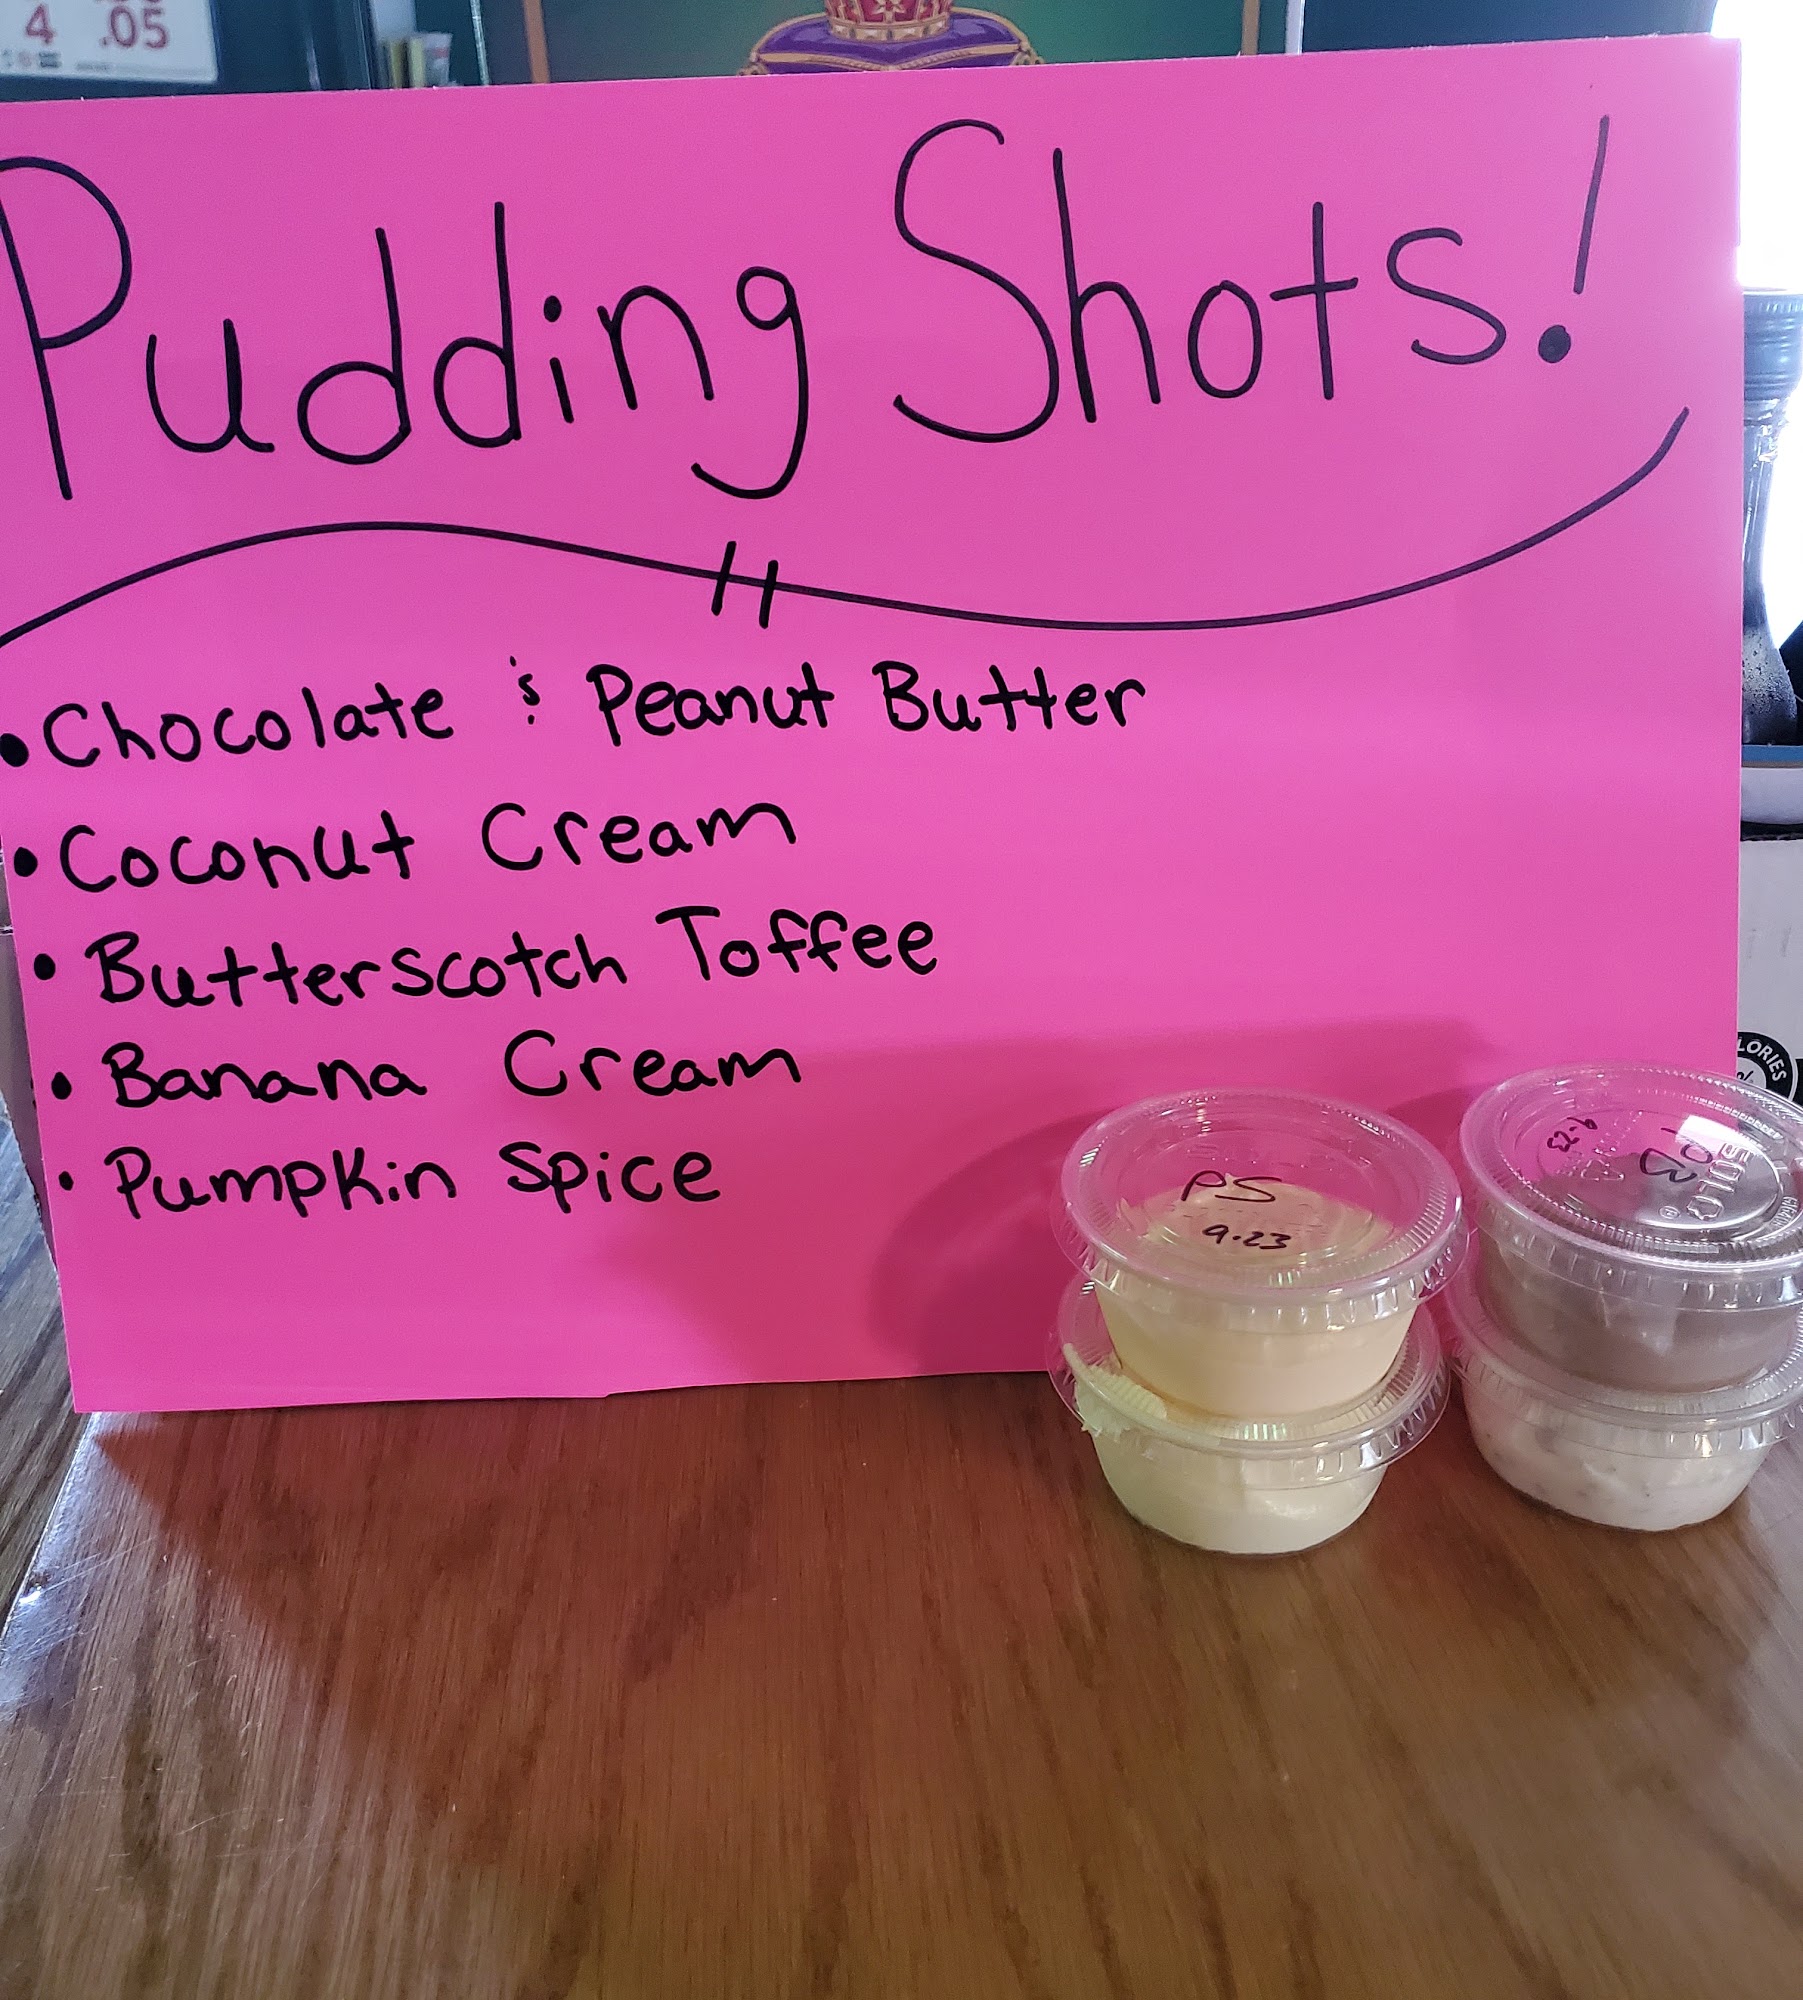 4 .05
Pudding Shots!
• Chocolate & Peanut Butter
• Coconut Cream
• Butterscotch Toffee
• Banana Cream
• Pumpkin Spice
PS
9.23
9-23
PB
SOLO